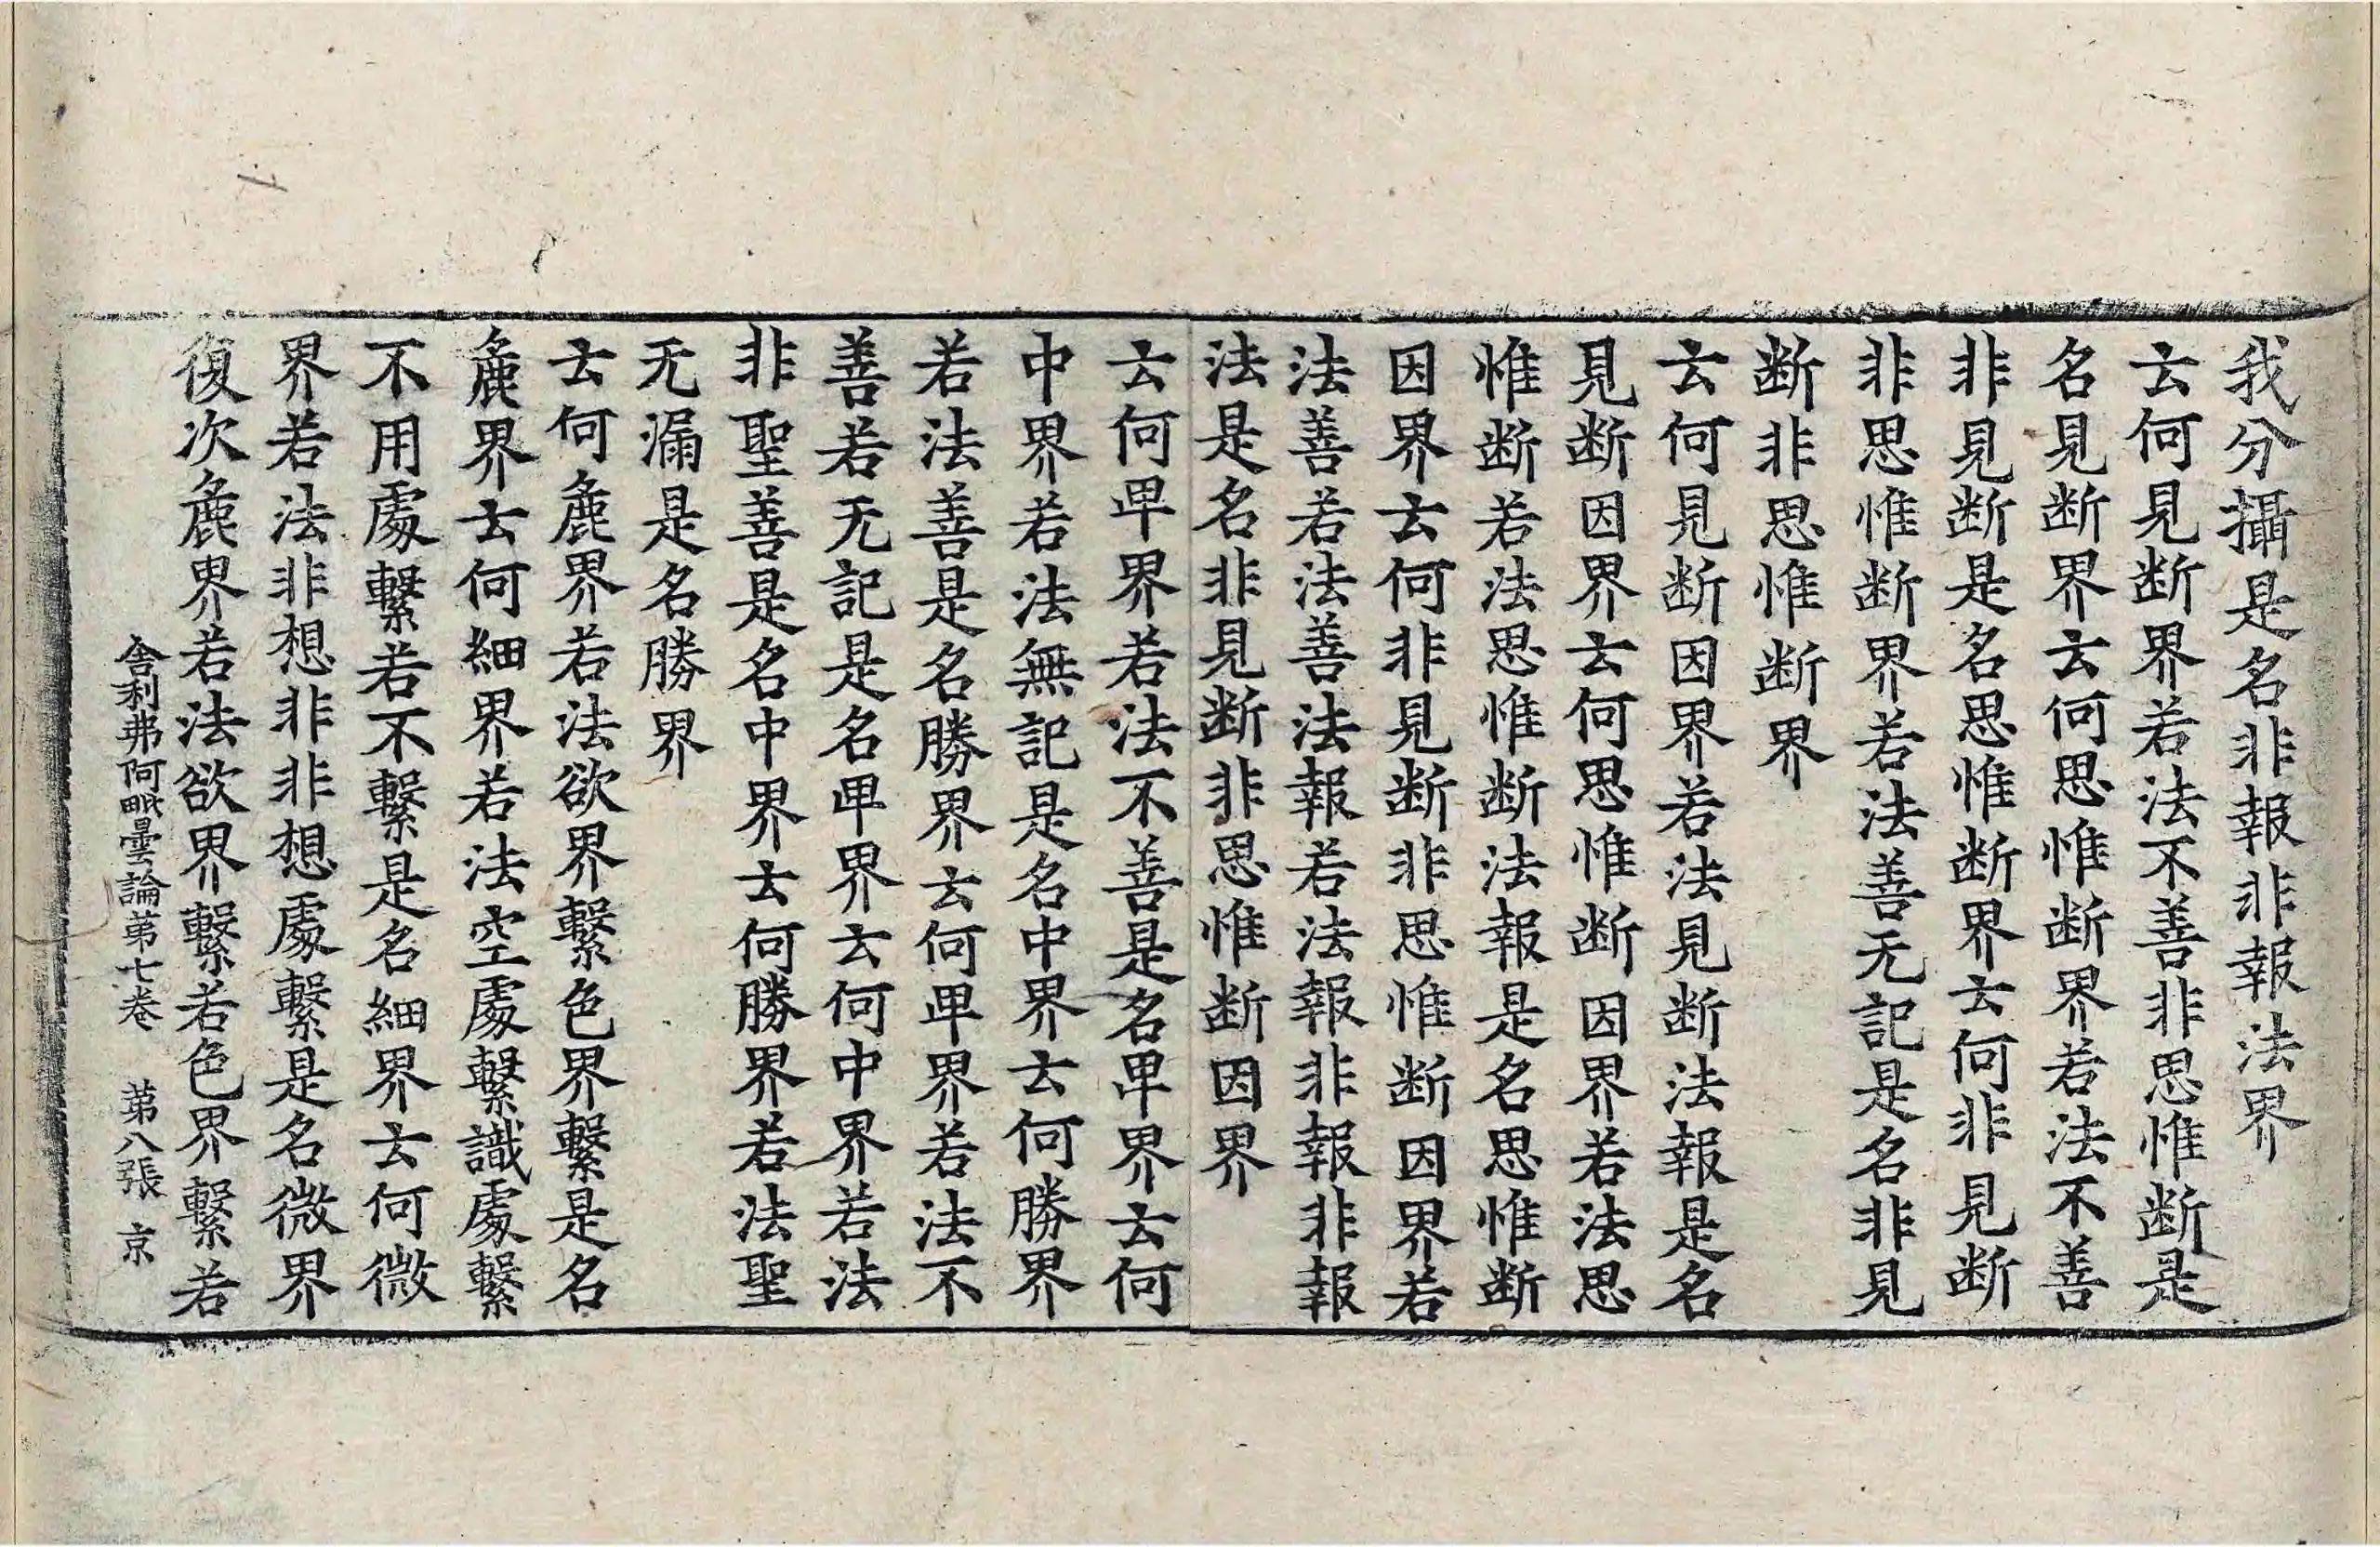 我分攝是名非報非報法界
云何見断界若法不善非思惟断是
名見断界云何思惟断界若法不善
非見断是名思惟断界云何非見断
非思惟断界若法善无記是名非見
断非思惟断界
云何見断因界若法見断法報是名
見断因界云何思惟断因界若法思
惟断若法思惟断法報是名思惟断
因界云何非見断非思惟断因界若
法善若法善法報若法報非報非報
法是名非見断非思惟断因界
云何卑界若法不善是名卑界云何
中界若法無記是名中界云何勝界
若法善是名勝界云何卑界若法不
善若无記是名卑界云何中界若法
非聖善是名中界云何勝界若法聖
无漏是名勝界
云何麁界若法欲界繫色界繫是名
麁界云何細界若法空處繫識處繫
不用處繫若不繫是名細界云何微
界若法非想非非想處繫是名微界
復次麁界若法欲界繫若色界繫若
舎利弗阿毗曇論苐七卷 苐八張 京